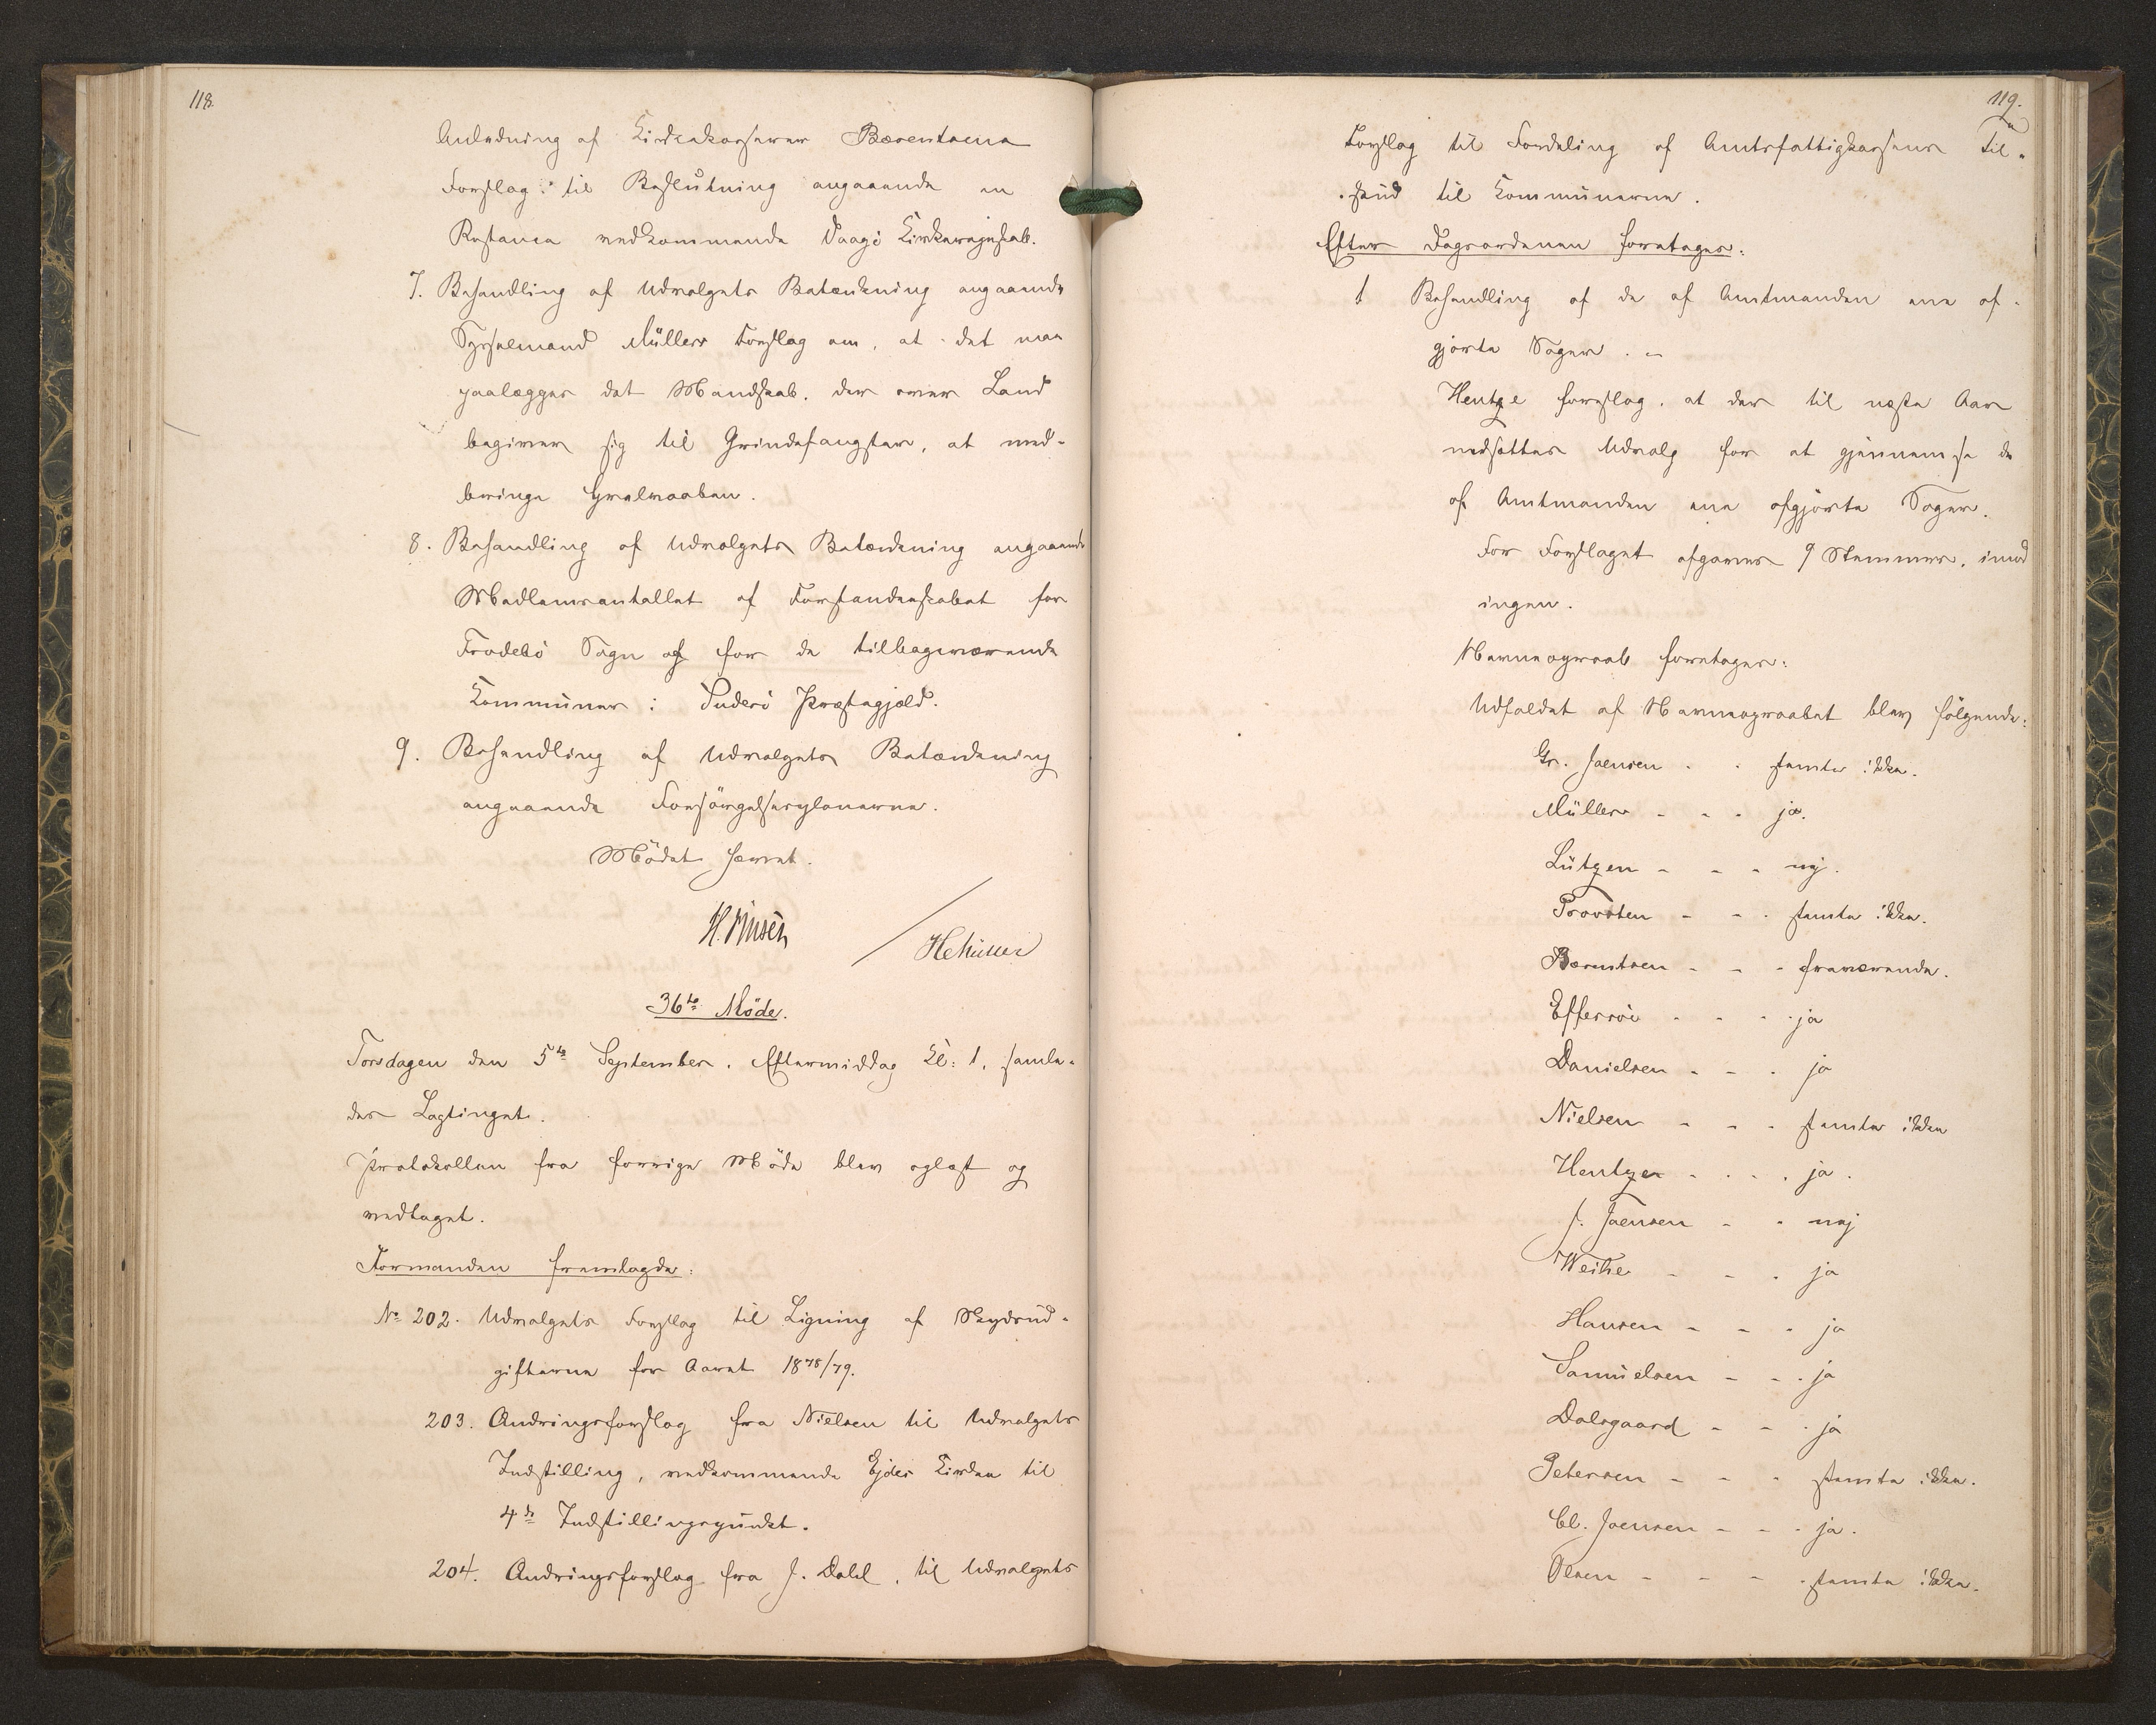 118.
Anledning af Kirkekasserer Bærentsens
Forslag til Beslutning angaaende en
Restance vedkommende Vaagö Kirkeregnskab.
7. Behandling af Udvalgets Betænkning angaaende
Sysselmand Müllers Forslag om, at det man
paalægges det Mandskab, der over Land
begiver sig til Grindefangster, at med-
bringe Hvalvaaben.
8. Behandling af Udvalgets Betænkning angaaende
Medlemsantallet af Forstanderskabet for
Frodebö Sogn og for de tilbageværende
Kommuner i Suderö Præstegjæld.
9. Behandling af Udvalgets Betænkning
angaaende Forsörgelsesplanerne.
Mödet hævet.
HCMüller
36te Möde.
Torsdagen den 5te September, Eftermiddag Kl: 1, samle-
des Lagtinget.
Protokollen fra forrige Möde blev oplæst og
vedtaget.
Formanden fremlagde:
No 202. Udvalgets Forslag til Ligning af Skydsud-
gifterne for Aaret 1878/79.
203. Ændringsforslag fra Nielsen til Udvalgets
Indstilling, vedkommende Ejdes Kirke til
4de Indstillingspunkt.
204. Ændringsforslag fra J. Dahl, til Udvalgets
119.
Forslag til Fordeling af Amtsfattigkassens Til-
skud til Kommunerne.
Efter Dagsordenen foretages:
1 Behandling af de af Amtmanden ene af-
gjorte Sager. -
Hentze foreslog, at der til næste Aar
nedsættes Udvalg for at gjennemse de
af Amtmanden ene afgjorte Sager.
For Forslaget afgaves 9 Stemmer, imod
ingen.
Navneopraab foretages:
Udfaldet af Navneopraabet blev fölgende:
Gr. Joensen - - stemte ikke.
Müller - - - ja.
Lützen - - - nej.
Provsten - - - stemte ikke.
Bærentsen - - - fraværende.
Effersöe - - - ja
Danielsen - - - ja
Nielsen - - - stemte ikke
Hentze - - - ja.
J. Joensen - - nej
Weihe - - - ja
Hansen - - - ja
Samuelsen - - - ja
Dalsgaard - - - ja
Petersen - - - stemte ikke.
Cl. Joensen - - - ja.
Olsen - - - stemte ikke.